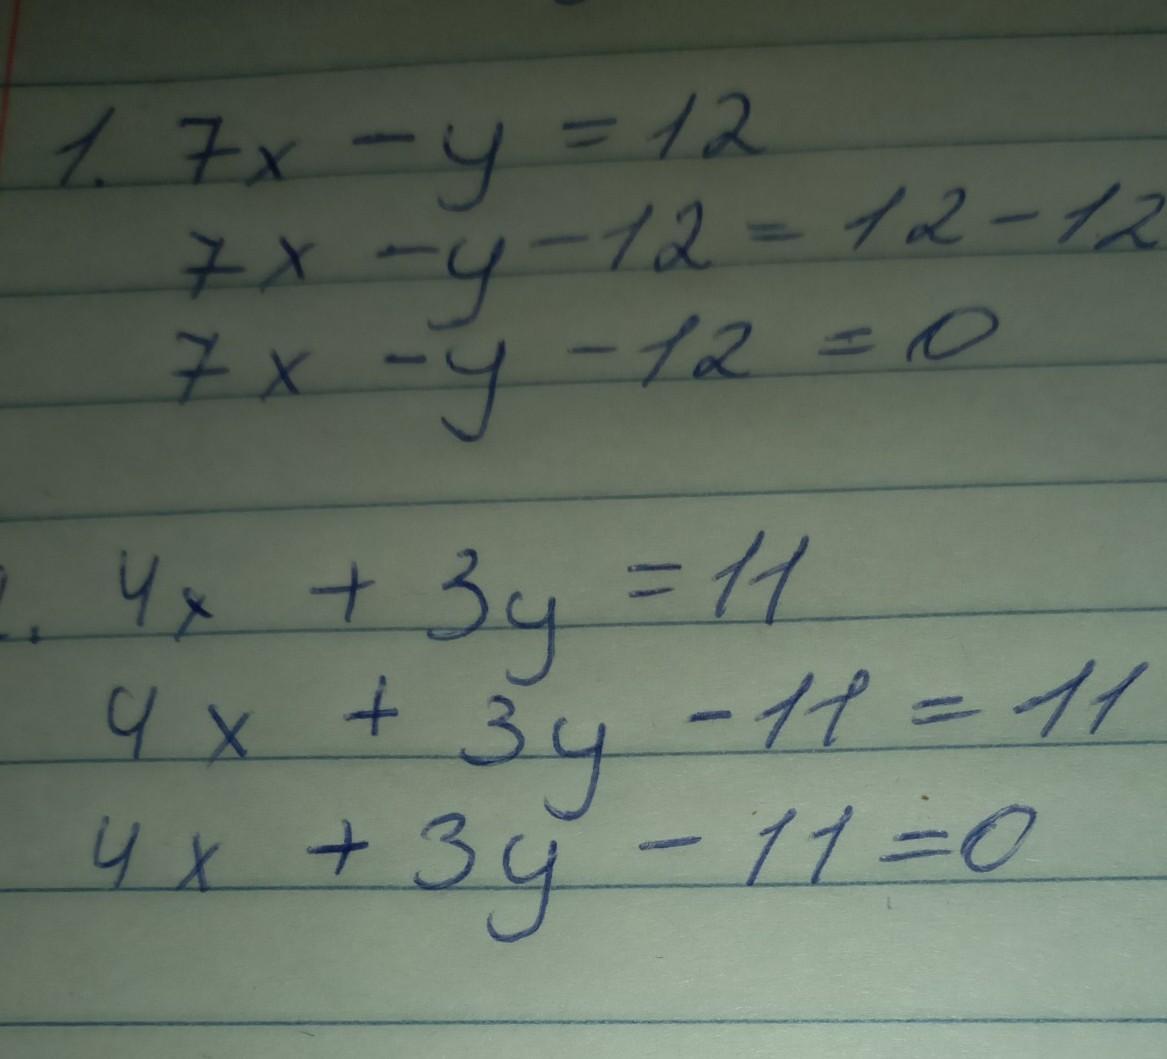 1. 7x - y = 12
7x - y - 12 = 12 - 12
7x - y - 12 = 0
. 4x + 3y = 11
4x + 3y - 11 = 11
4x + 3y - 11 = 0